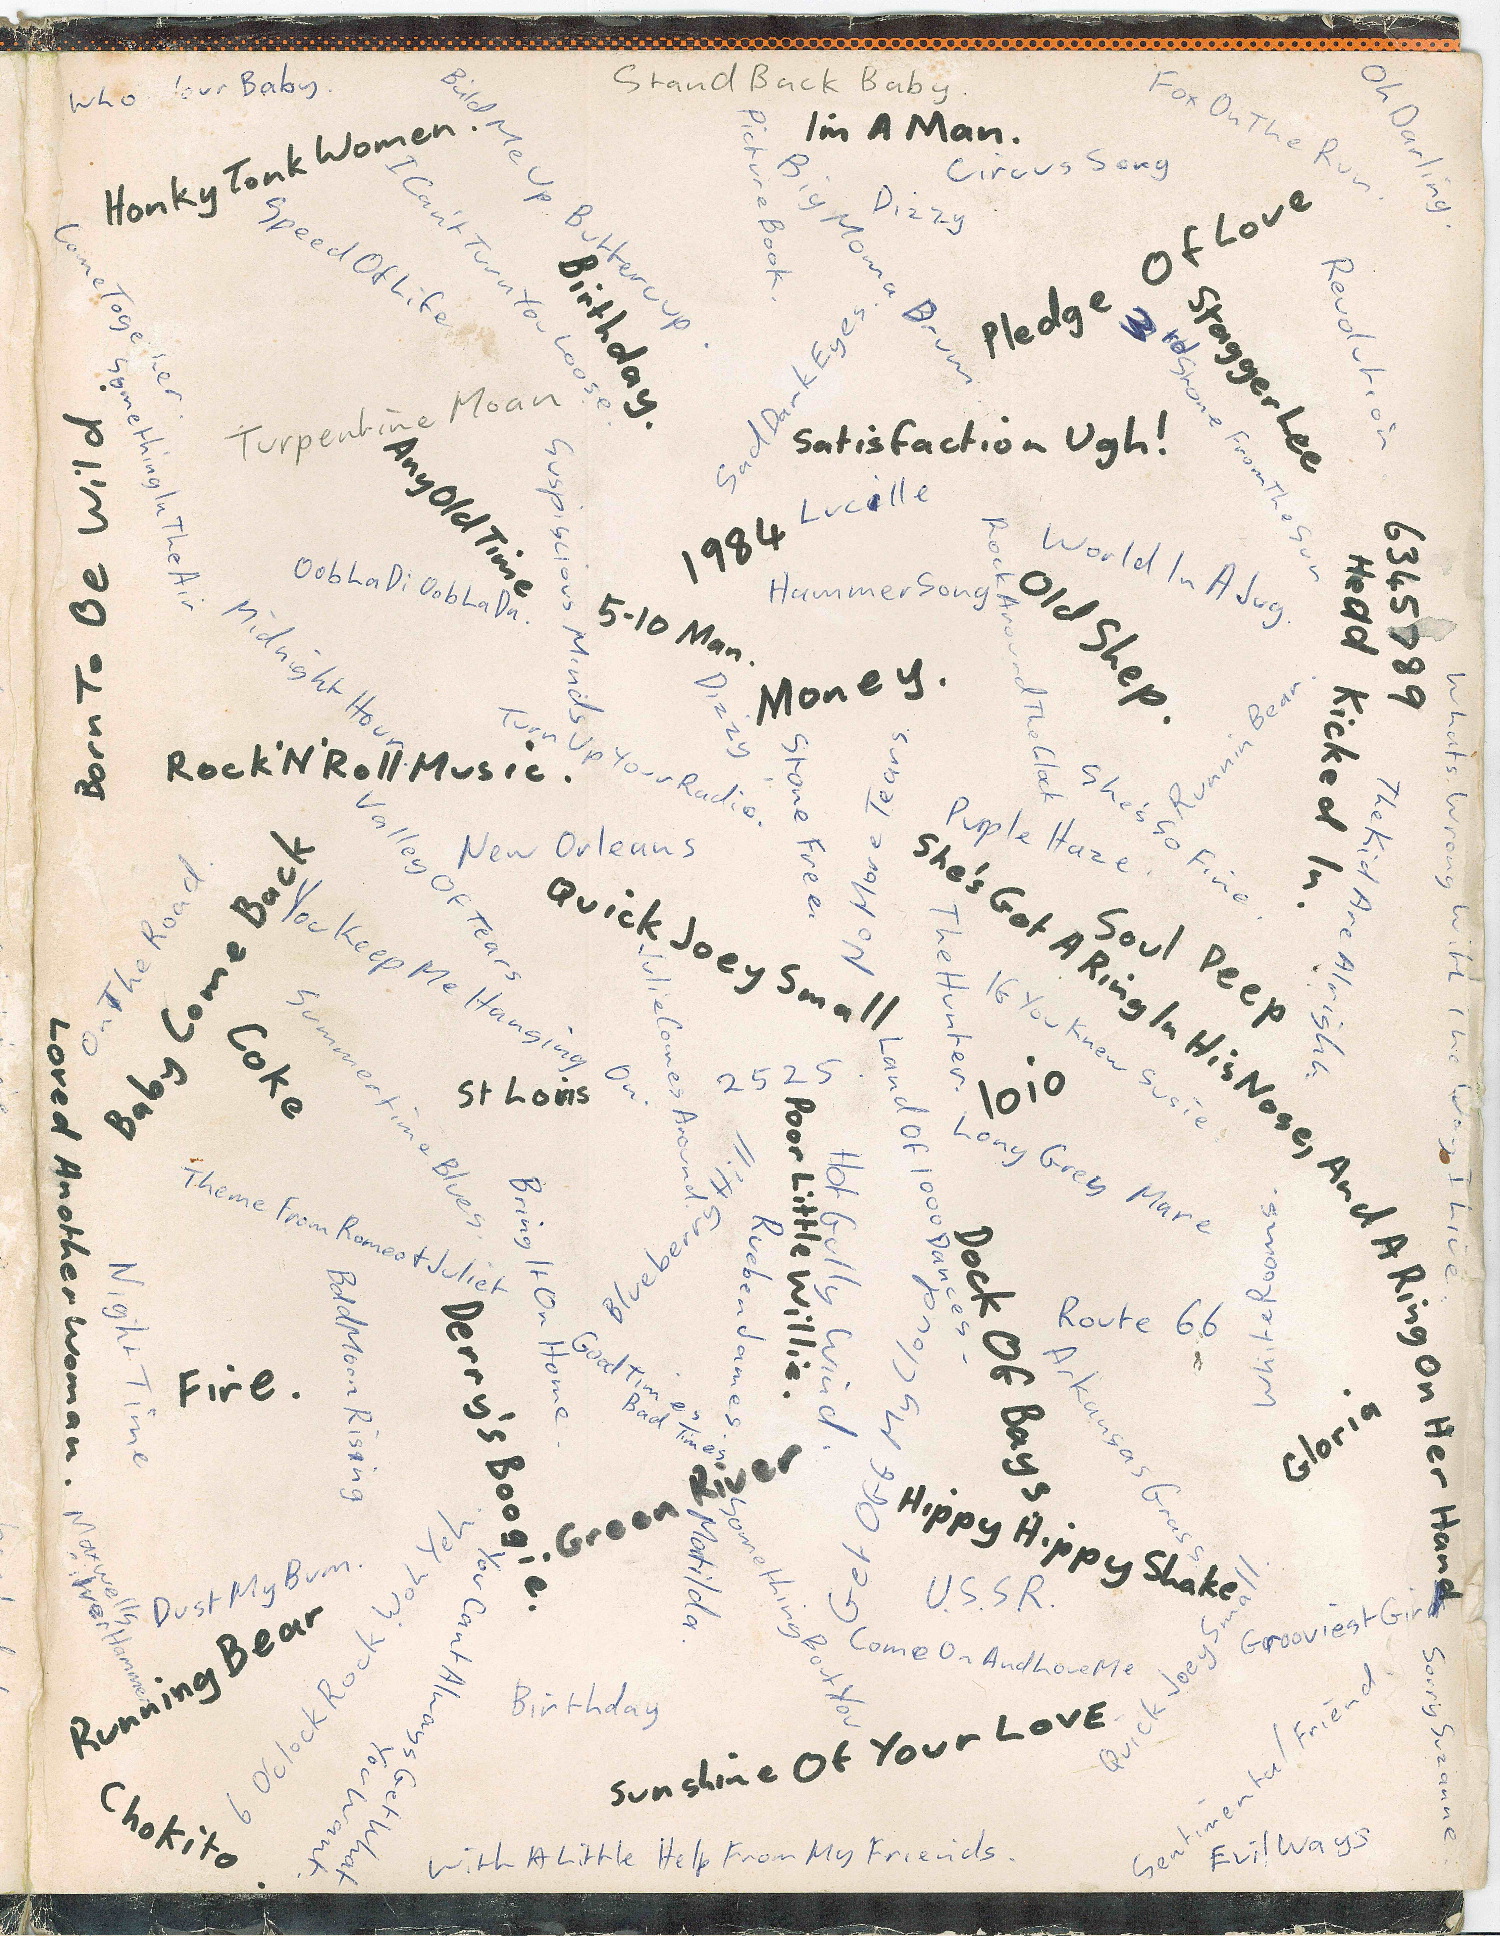 Who Your Baby.
Build Me Up Buttercup.
Stand Back Baby.
Fox On The Run.
Oh Darling.
Honky Tonk Women.
I'm A Man.
Picture Book.
Big Moma Drum
Circus Song
Dizzy
I Can't Turn You Loose.
Speed Of Life
Come Together.
Something In The Air
Birthday.
Pledge Of Love
Stagger Lee
3rd Stone From The Sun
Revolution
Sad Dark Eyes
Turpentine Moan
Any Old Time
Satisfaction Ugh!
Born To Be Wild
Suspiscious Minds
Lucille
1984
Oobla Di Oobla Da.
Hammer Song
Rock Around The Clock
World In A Jug.
Old Shep.
6345789
Head Kicked In.
Midnight Hour
5-10 Man.
Dizzy
Money.
Turn Up Your Radio.
Rock'N'Roll Music.
Stone Free.
No More Tears
Running Bear
She's So Fine.
Purple Haze.
The Kid Are Alright.
Whats Wrong With The Way I Live.
Valley Of Tears
New Orleans
She's Got A Ring In His Nose, And A Ring On Her Hand
Quick Joey Small
Soul Deep
On The Road
Baby Come Back
You Keep Me Hanging On.
Julie Comes Around.
The Hunter.
If You Knew Susie.
Coke
Summertime Blues.
St Louis
2525.
Land Of 1000 Dances.
1010
Long Grey Mare
Loved Another Woman.
Poor Little Willie.
Hot Gully Wind.
Theme From Romeo & Juliet
Bring It On Home.
Blueberry Hill
Rueben James
Dock Of Bays.
Route 66
White Rooms.
Night Time
Bad Moon Rising
Good Times Bad Times
Get Off My Cloud
Arkansas Grass
Fire.
Derry's Boogie.
Gloria.
Green River
Hippy Hippy Shake
Matilda.
Something Bout You
Maxwells Silver Hammer
Dust My Bum.
6 Oclock Rock
You Cant Always Get What You Want.
U.S.S.R.
Come On And Love Me
Grooviest Girl
Quick Joey Small
Running Bear
Birthday
Sunshine Of Your Love
Sentimental Friend
Sorry Suzanne.
Chokito.
With A Little Help From My Friends.
Evil Ways